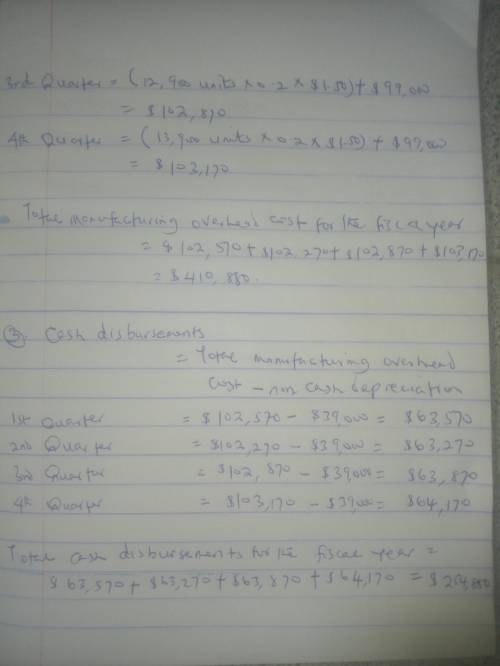 3rd Quarter = (12,900 units × 0.2 × $1.50) + $99,000
= $102,870
4th Quarter = (13,900 units × 0.2 × $1.50) + $99,000
= $103,170
Total manufacturing overhead cost for the fiscal year
= $102,570 + $102,270 + $102,870 + $103,170
= $410,880.
③ Cash disbursements
= Total manufacturing overhead
Cost – non cash depreciation
1st Quarter = $102,570 – $39,000 = $63,570
2nd Quarter = $102,270 – $39,000 = $63,270
3rd Quarter = $102,870 – $39,000 = $63,870
4th Quarter = $103,170 – $39,000 = $64,170
Total cash disbursements for the fiscal year =
$63,570 + $63,270 + $63,870 + $64,170 = $254,880